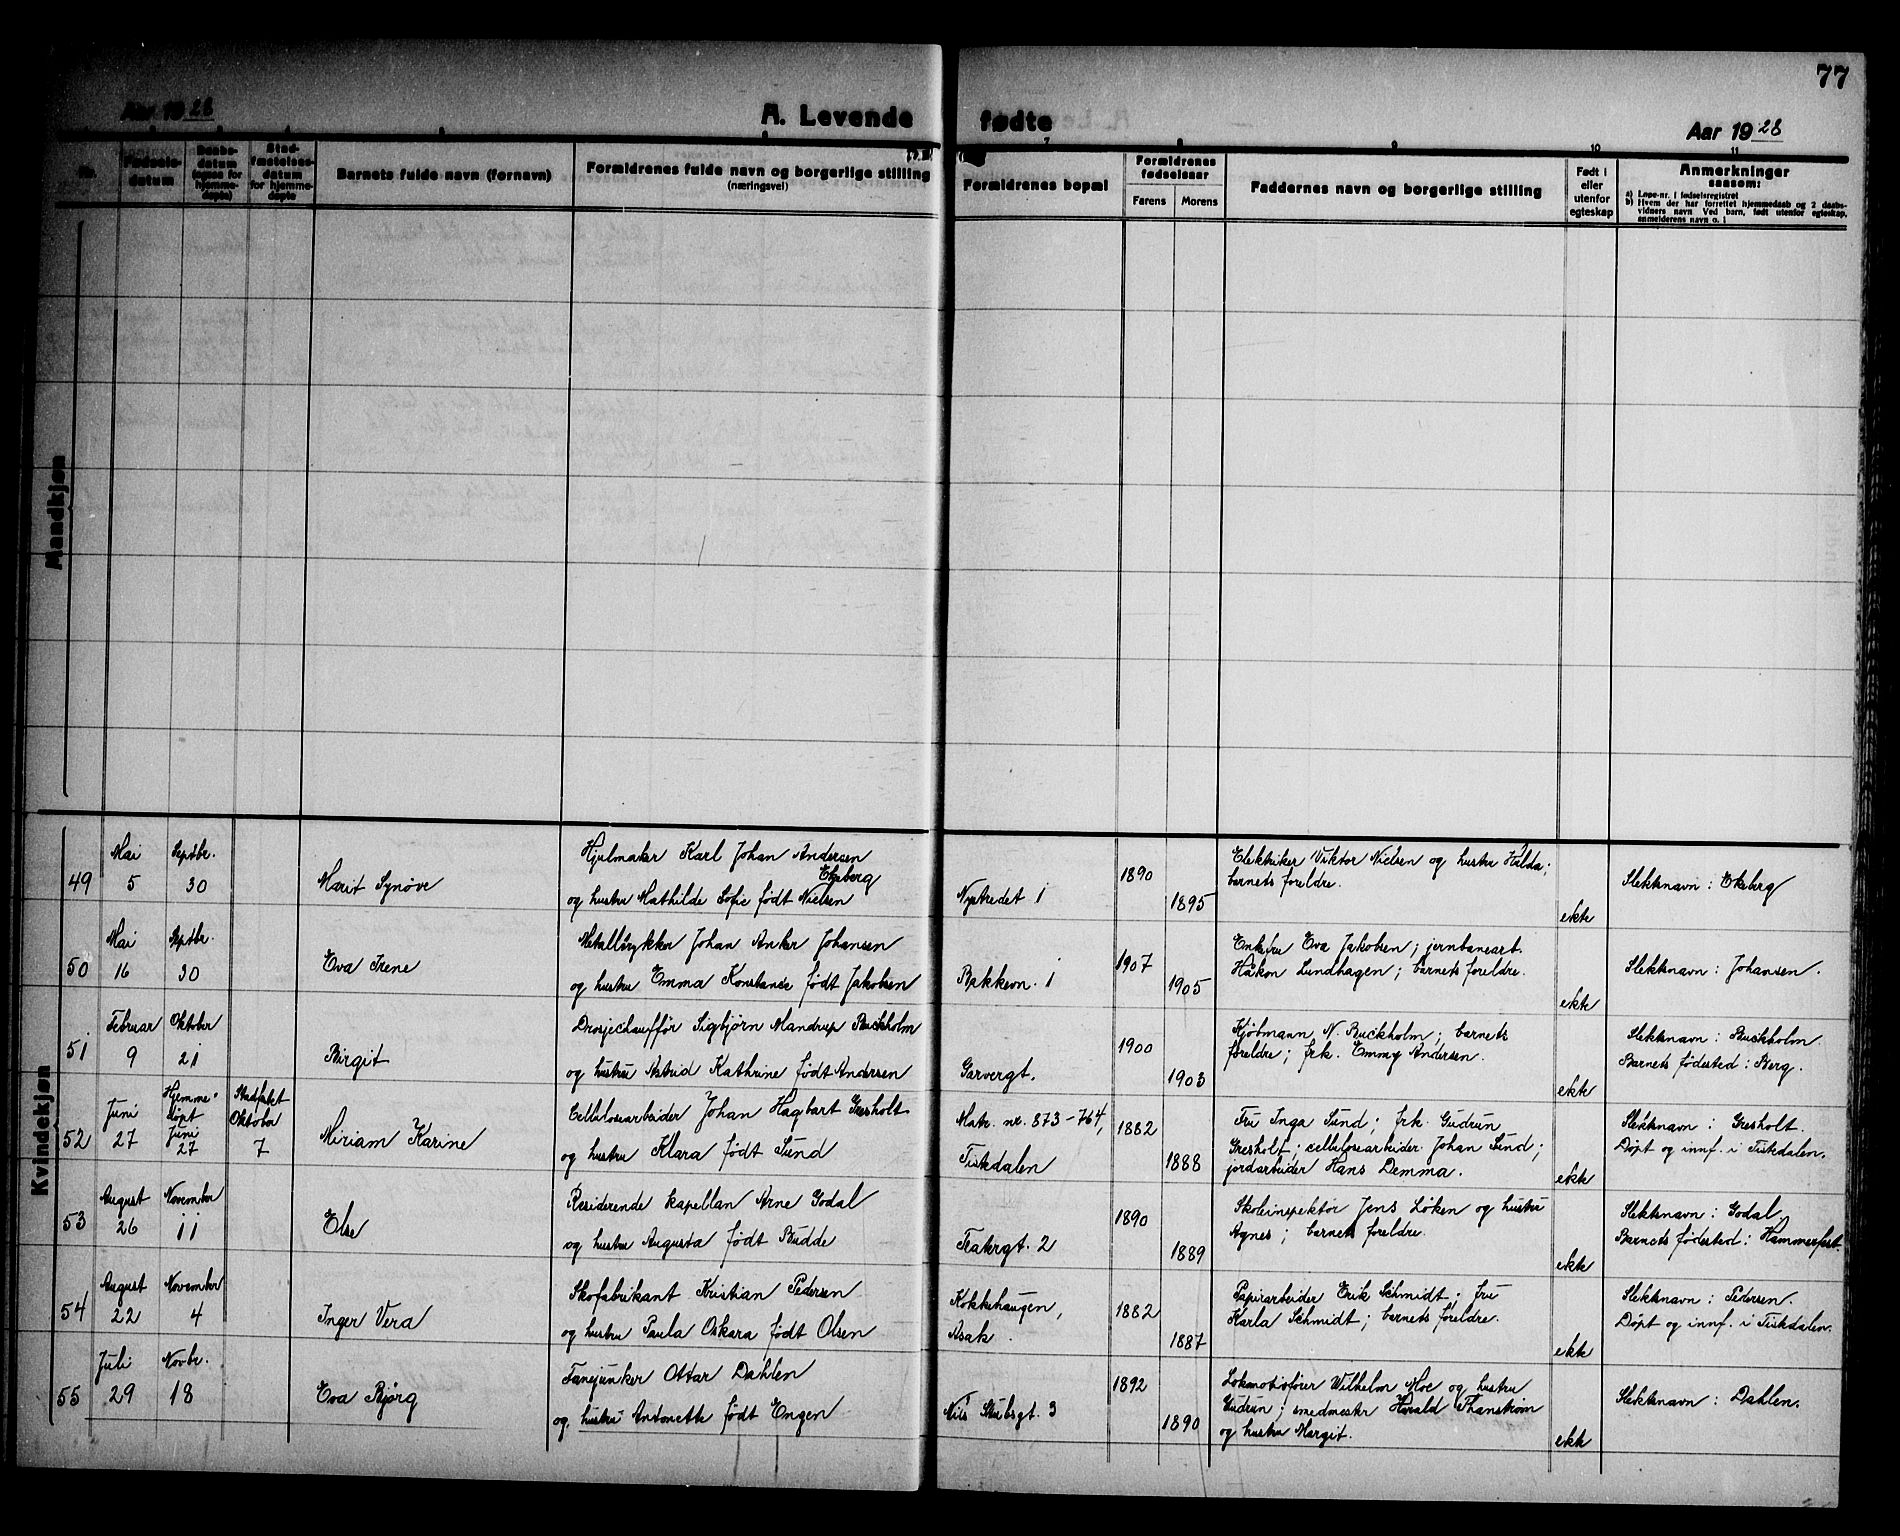 77
Aar 1928
A. Levende fødte
Aar 1928
Nr.
Fødsels-
datum
Daabs-
datum
(ogsaa for
hjemme-
døpte)
Stad-
fæstelses-
datum
for hjemme-
døpte
Barnets fulde navn (fornavn)
Forældrenes fulde navn og borgerlige stilling
(næringsvei)
Forældrenes bopæl
Forældrenes
fødselsaar
Farens
Morens
Faddernes navn og borgerlige stilling
Født i
eller
utenfor
egteskap
Anmerkninger
saasom:
a) Løpe-nr. i fødselsregistret
b) Hvem der har forrettet hjemmedaab og 2 daabs-
vidners navn Ved barn, født utenfor egteskap,
anmelderens navn o. l
Mandkjøn
Kvindekjøn
49
Mai
5
Septbr.
30
Marit Synøve
Hjulmaker Karl Johan Andersen
Ekeberg
og hustru Mathilde Sofie født Nielsen
Nystredet 1
1890
1895
Elektriker Viktor Nielsen og hustru Hilda;
barnets foreldre.
ekte
Slektsnavn: Ekeberg
50
Mai
16
Septbr.
30
Eva Irene
Metalltrykker Johan Anker Johansen
og hustru Emma Konstanse født Jakobsen
Bakkevn. 1
1907
1905
Enkefru Eva Jakobsen; jernbanearb.
Håkon Lundhagen; barnets foreldre.
ekte
Slektsnavn: Johansen.
51
Februar
9
Oktober
21
Birgit
Drosjechauffør Sigbjørn Mandrup Buckholm
og hustru Astrid Kathrine født Andersen
Garvergt.
1900
1903
Kjøbmann N. Buckholm; barnets
foreldre; frk. Emmy Andersen.
ekte
Slektsnavn: Buckholm.
Barnets fødested: Berg.
52
Juni
27
Hjemme-
døpt
Juni
27
Stadfekt
Oktober
7
Miriam Karine
Cellulosearbeider Johan Hagbart Gresholt
og hustru Klara født Sund
Matr. nr. 873-764,
Tistedalen
1882
1888
Fru Inga Sund; frk. Gudrun
Gresholt; cellulosearbeider Johan Sund;
jordarbeider Hans Demma.
ekte
Slektsnavn: Gresholt.
Døpt og innf. i Tistedalen.
53
August
26
November
11
Else
Residerende kapellan Arne Godal
og hustru Augusta født Budde
Teatergt. 2
1890
1889
Skoleinspektør Jens Løken og hustru
Agnes; barnets foreldre.
ekte
Slektsnavn: Godal
Barnets fødested: Hammerfest.
54
August
22
November
4
Inger Vera
Skofabrikant Kristian Pedersen
og hustru Paula Oskara født Olsen
Kokkehaugen,
Asak.
1882
1887
Papirarbeider Erik Schmidt; fru
Karla Schmidt; barnets foreldre.
ekte
Slektsnavn: Pedersen.
Døpt og innf. i Tistedalen.
55
Juli
29
Novbr.
18
Eva Bjørg
Fanejunker Ottar Dahlen
og hustru Antonette født Engen
Nils Stubsgt. 3
1892
1890
Lokomotivfører Wilhelm Moe og hustru
Gudrun; smedmester Harald Thanstrøm
og hustru Margit.
ekte
Slektsnavn: Dahlen.